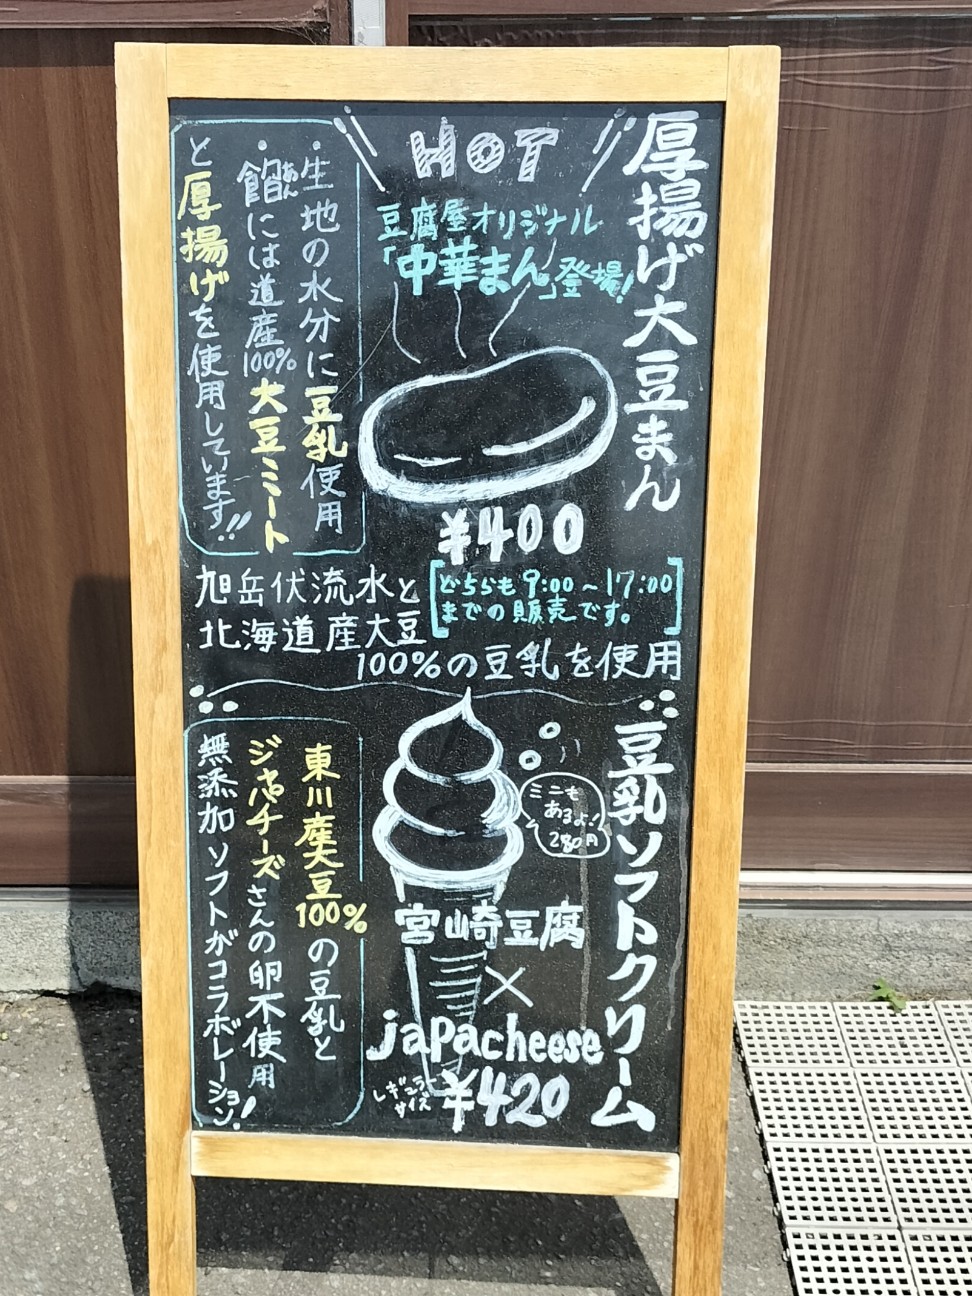 厚揚げ大豆まん
HOT
豆腐屋オリジナル
「中華まん」登場!
¥400
・生地の水分に豆乳使用
・餡には道産100%大豆ミート
あん
と厚揚げを使用しています!!
旭岳伏流水と
北海道産大豆
100%の豆乳を使用
[どちらも9:00～17:00
までの販売です。]
豆乳ソフトクリーム
ミニも
あるよ!
280円
宮崎豆腐
×
japacheese
レギュラー
サイズ
¥420
東川産大豆100%の豆乳と
ジャパチーズさんの卵不使用
無添加ソフトがコラボレーション!